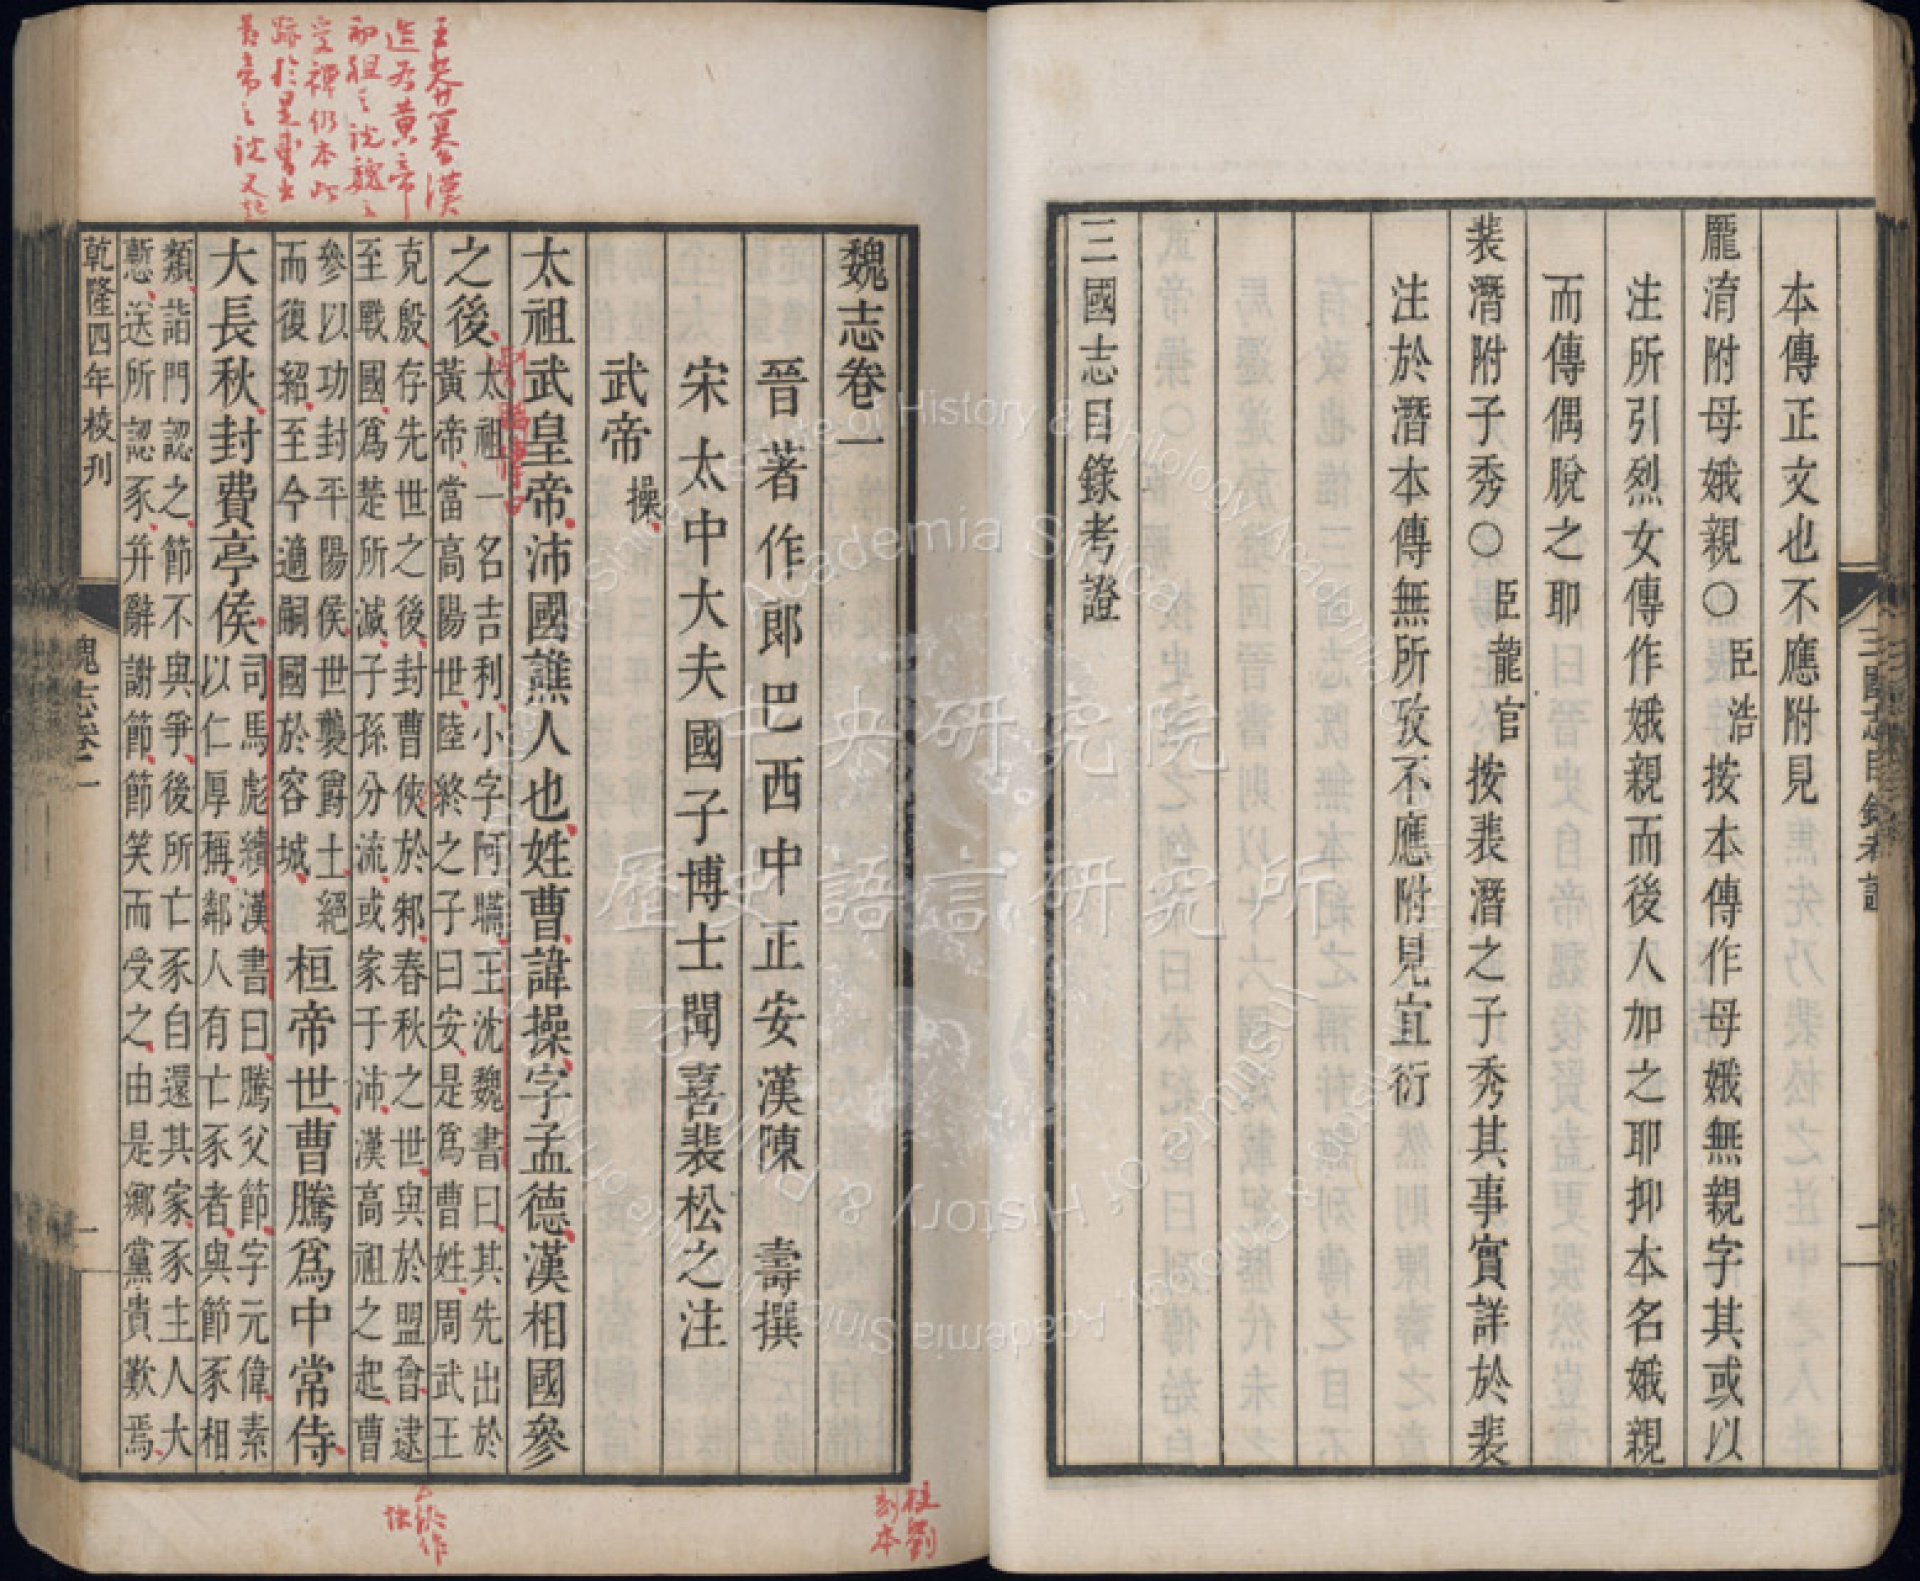 本傳正文也不應附見
龐淯附母娥親○臣浩按本傳作母娥無親字其或以
注所引烈女傳作娥親而後人加之耶抑本名娥親
而傳偶脫之耶
裴潛附子秀○臣龍官按裴潛之子秀其事實詳於裴
注於潛本傳無所攷不應附見宜衍
三國志目錄考證
魏志卷一
晉著作郎巴西中正安漢陳壽撰
宋太中大夫國子博士聞喜裴松之注
武帝操
太祖武皇帝沛國譙人也姓曹諱操字孟德漢相國參
之後
太祖一名吉利小字阿瞞王沈魏書曰其先出於
黃帝當高陽世陸終之子曰安是爲曹姓周武王
克殷存先世之後封曹俠於邾春秋之世與於盟會逮
至戰國爲楚所滅子孫分流或家于沛漢高祖之起曹
參以功封平陽侯世襲爵土絕
而復紹至今適嗣國於容城
桓帝世曹騰爲中常侍
大長秋封費亭侯
司馬彪續漢書曰騰父節字元偉素
以仁厚稱鄰人有亡豕者與節豕相
類詣門認之節不與爭後所亡豕自還其家豕主人大
慙送所認豕幷辭謝節節笑而受之由是鄉黨貴歎焉
乾隆四年校刊
魏志卷一
一
王莽簒漢
造爲黃帝
初祖之說魏之
受禪仍本此
跡於是曹出
黃帝之說又起
校劉
刻本
中央研究院
歷史語言研究所
Institute of History & Philology Academia Sinica